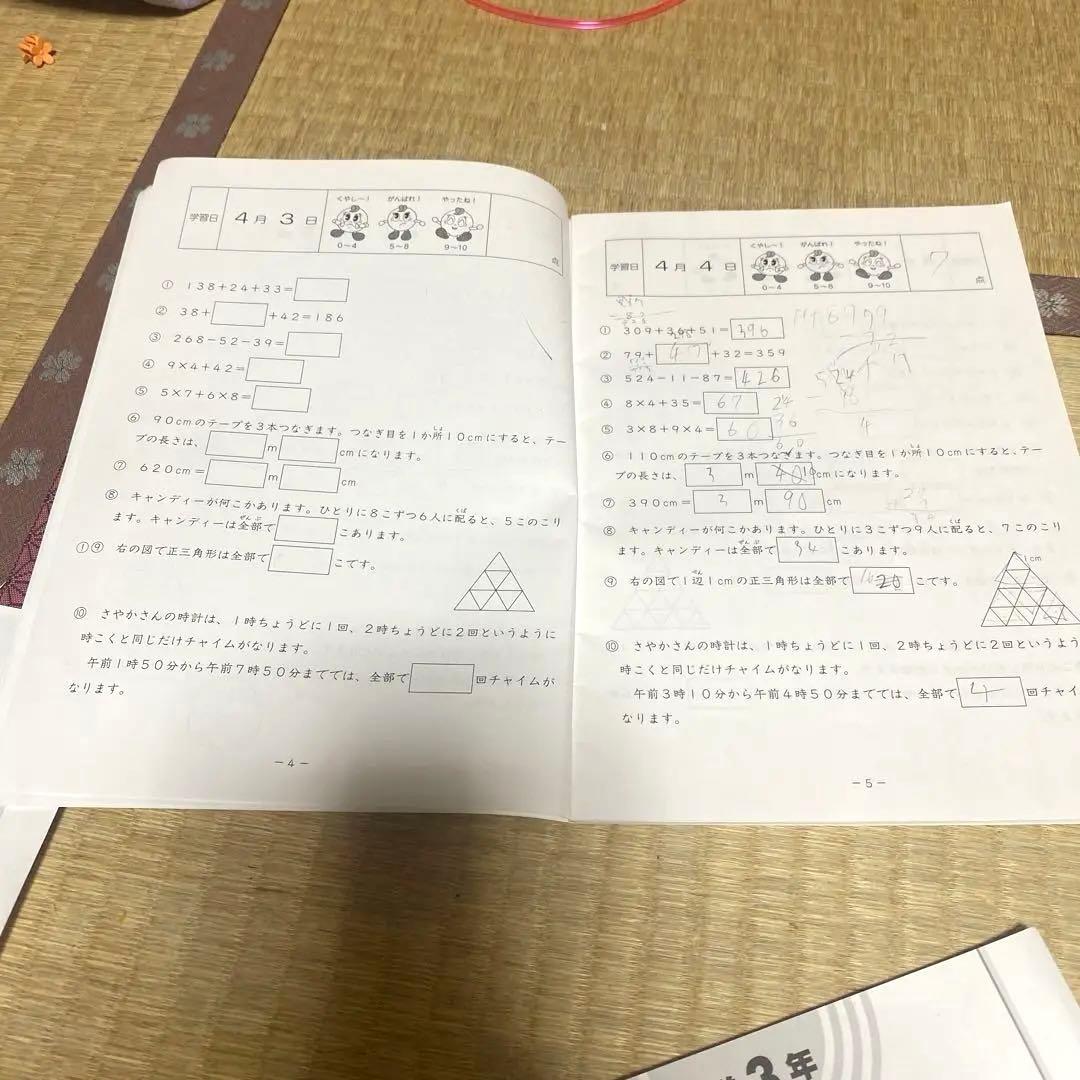 学習日 4月 3日 くやし〜! がんばれ! やったね!
0〜4 5〜8 9〜10 点
① 138+24+33=
② 38+ +42=186
③ 268-52-39=
④ 9×4+42=
⑤ 5×7+6×8=
⑥ 90cmのテープを3本つなぎます。つなぎ目を1か所10cmにすると、テー
プの長さは、 m cmになります。
⑦ 620cm= m cm
⑧ キャンディーが何こかあります。ひとりに8こずつ6人に配ると、5このこり
ます。キャンディーは全部で こあります。
①⑨ 右の図で正三角形は全部で こです。
⑩ さやかさんの時計は、1時ちょうどに1回、2時ちょうどに2回というように
時こくと同じだけチャイムがなります。
午前1時50分から午前7時50分まででは、全部で 回チャイムが
なります。
-4-
学習日 4月 4日 くやし〜! がんばれ! やったね! 7
0〜4 5〜8 9〜10 点
① 309+36+51= 396
② 79+ +32=359
③ 524-11-87= 426
④ 8×4+35= 67
⑤ 3×8+9×4= 60
24
36
⑥ 110cmのテープを3本つなぎます。つなぎ目を1か所10cmにすると、テー
プの長さは、 3 m 10 cmになります。
⑦ 390cm= 3 m 90 cm
⑧ キャンディーが何こかあります。ひとりに3こずつ9人に配ると、7このこり
ます。キャンディーは全部で 34 こあります。
⑨ 右の図で1辺1cmの正三角形は全部で こです。
1cm
⑩ さやかさんの時計は、1時ちょうどに1回、2時ちょうどに2回というよう
時こくと同じだけチャイムがなります。
午前3時10分から午前4時50分まででは、全部で 4 回チャイ
なります。
-5-
3年